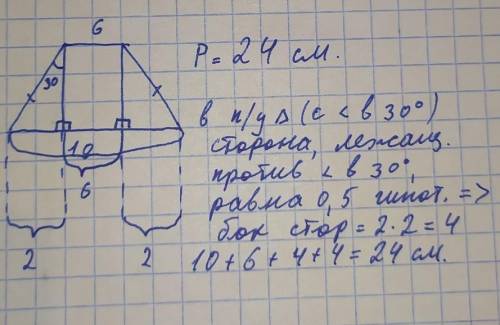 6
P = 24 см.
30
в п/у Δ (с < в 30°)
сторона, лежащ.
против < в 30°,
равна 0,5 гипот. =>
бок стор = 2·2 = 4
10 + 6 + 4 + 4 = 24 см.
10
6
2
2